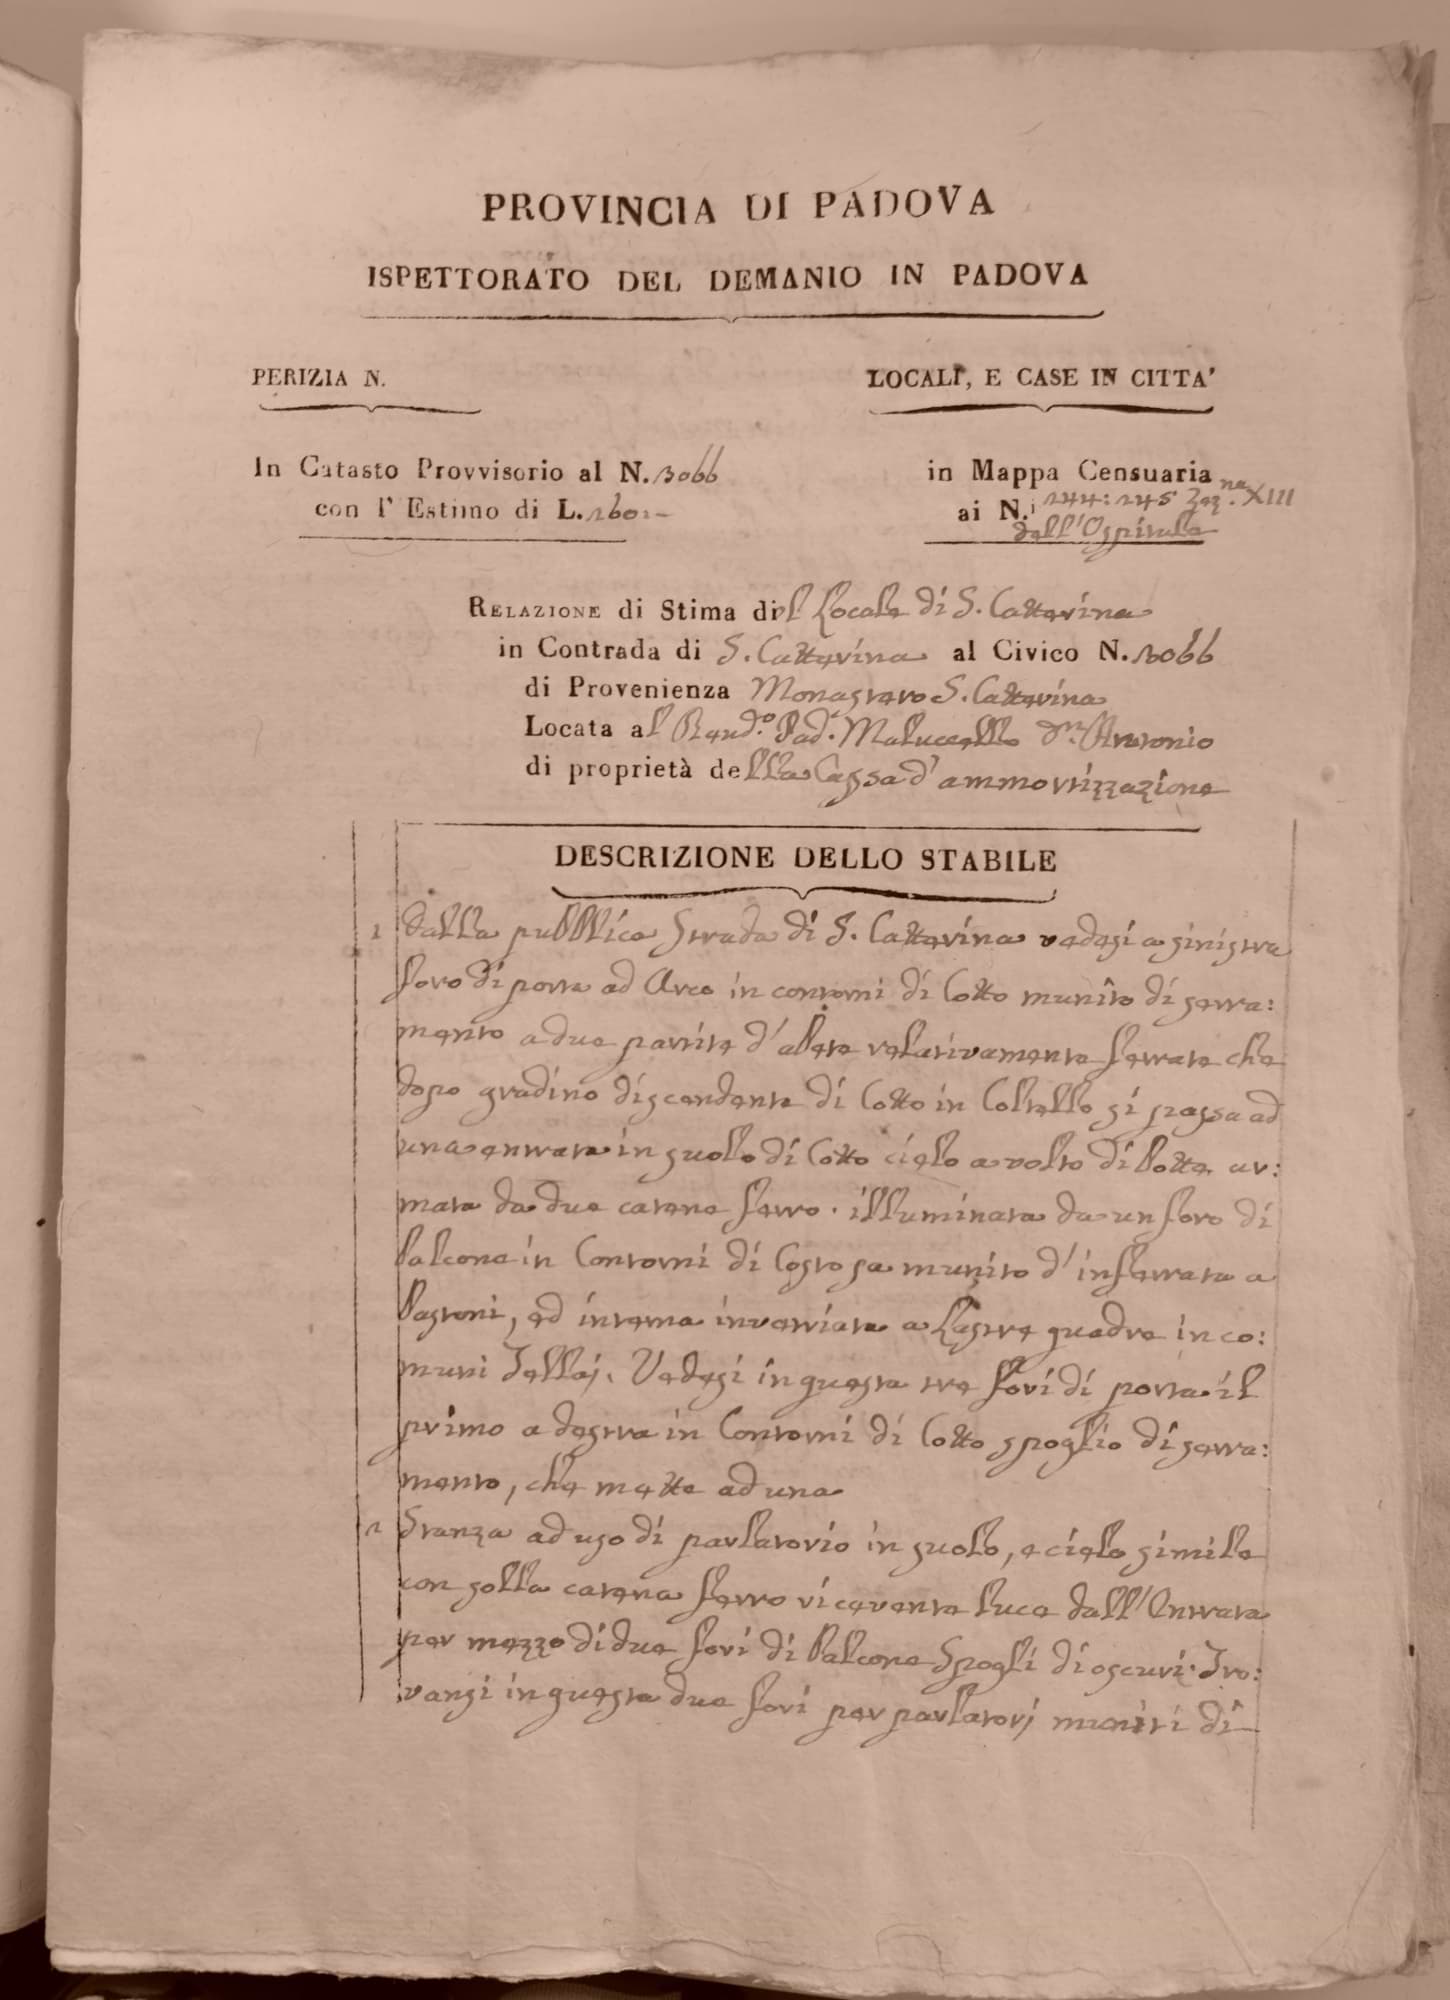 PROVINCIA DI PADOVA
ISPETTORATO DEL DEMANIO IN PADOVA
PERIZIA N.
LOCALI, E CASE IN CITTA'
In Catasto Provvisorio al N. 3066
con l' Estimo di L. 260:-
in Mappa Censuaria
ai N.i 244: 245 Sez.ne XIII
dell'Ospitale
RELAZIONE di Stima del Locale di S. Catterina
in Contrada di S. Catterina al Civico N. 3066
di Provenienza Monastero S. Catterina
Locata al Rend.o Pad.e Malucello Dn. Antonio
di proprietà della Cassa d'ammortizzazione
DESCRIZIONE DELLO STABILE
1 Dalla pubblica Strada di S. Catterina vedesi a sinistra
foro di porta ad Arco in contorni di Cotto munito di serra:
mento a due partite d'abete relativamente ferrate che
dopo gradino discendente di Cotto in Coltello si passa ad
una entrata in suolo di Cotto cielo a volto di Cotto ar:
mata da due catene ferro. illuminata da un foro di
balcone in Contorni di Costosa munito d'inferrata a
bastoni, ed interna invetriata a Lastre quadre in co:
muni Tellaj. Vedesi in questa tre fori di porta. il
primo a destra in Contorni di Cotto spoglio di serra:
mento, che mette ad una
2 Stanza ad uso di parlatorio in suolo, e cielo simile
con solla catena ferro ricevente luce dall'Entrata
per mezzo di due fori di balcone Spogli di oscuri. Tro:
vansi in questa due fori per parlatorj muniti di